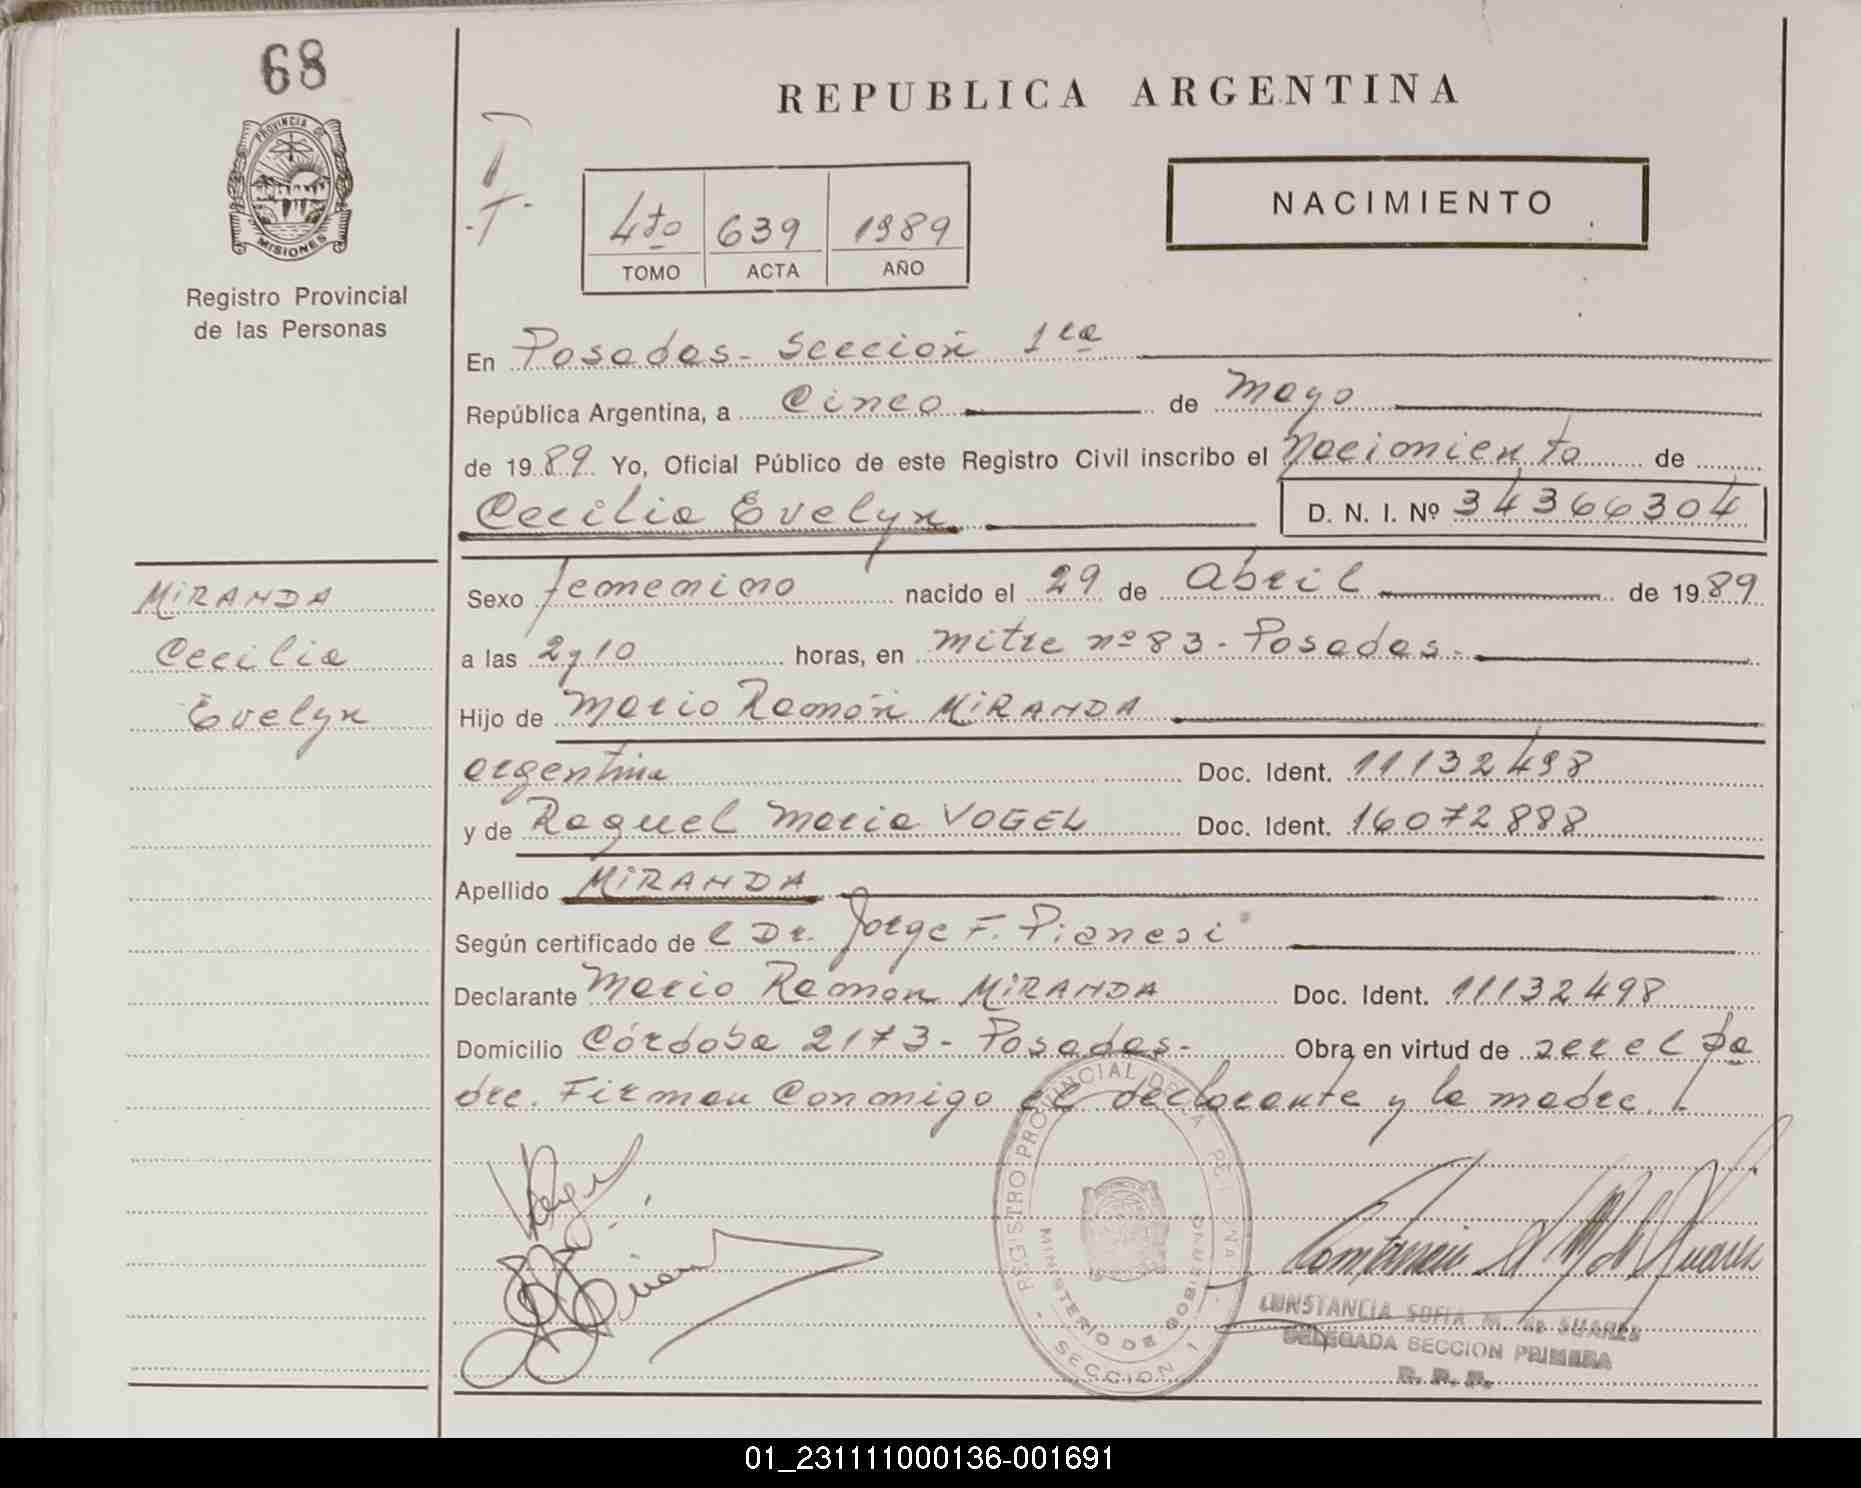 68
REPUBLICA ARGENTINA
PROVINCIA DE
MISIONES
Registro Provincial
de las Personas
4to 639 1989
TOMO ACTA AÑO
NACIMIENTO
En Posadas - Sección 1ra
República Argentina, a Cinco de Mayo
de 1989. Yo, Oficial Público de este Registro Civil inscribo el Nacimiento de
Cecilia Evelyn
D. N. I. Nº 34366304
MIRANDA
Cecilia
Evelyn
Sexo femenino nacido el 29 de Abril de 1989
a las 2 y 10 horas, en Mitre nº 83 - Posadas.
Hijo de Mario Ramón MIRANDA
argentina Doc. Ident. 11132498
y de Raquel Maria VOGEL Doc. Ident. 16072888
Apellido MIRANDA
Según certificado de el Dr. Jorge F. Pianesi
Declarante Mario Ramon MIRANDA Doc. Ident. 11132498
Domicilio Córdoba 2173 - Posadas - Obra en virtud de ser el pa
dre. Firman Conmigo el declarante y la madre.
REGISTRO PROVINCIAL DE LAS PERSONAS
MINISTERIO DE GOBIERNO
SECCION 1
CONSTANCIA SOFIA M. de SUARES
DELEGADA SECCION PRIMERA
R. P. P.
01_231111000136-001691